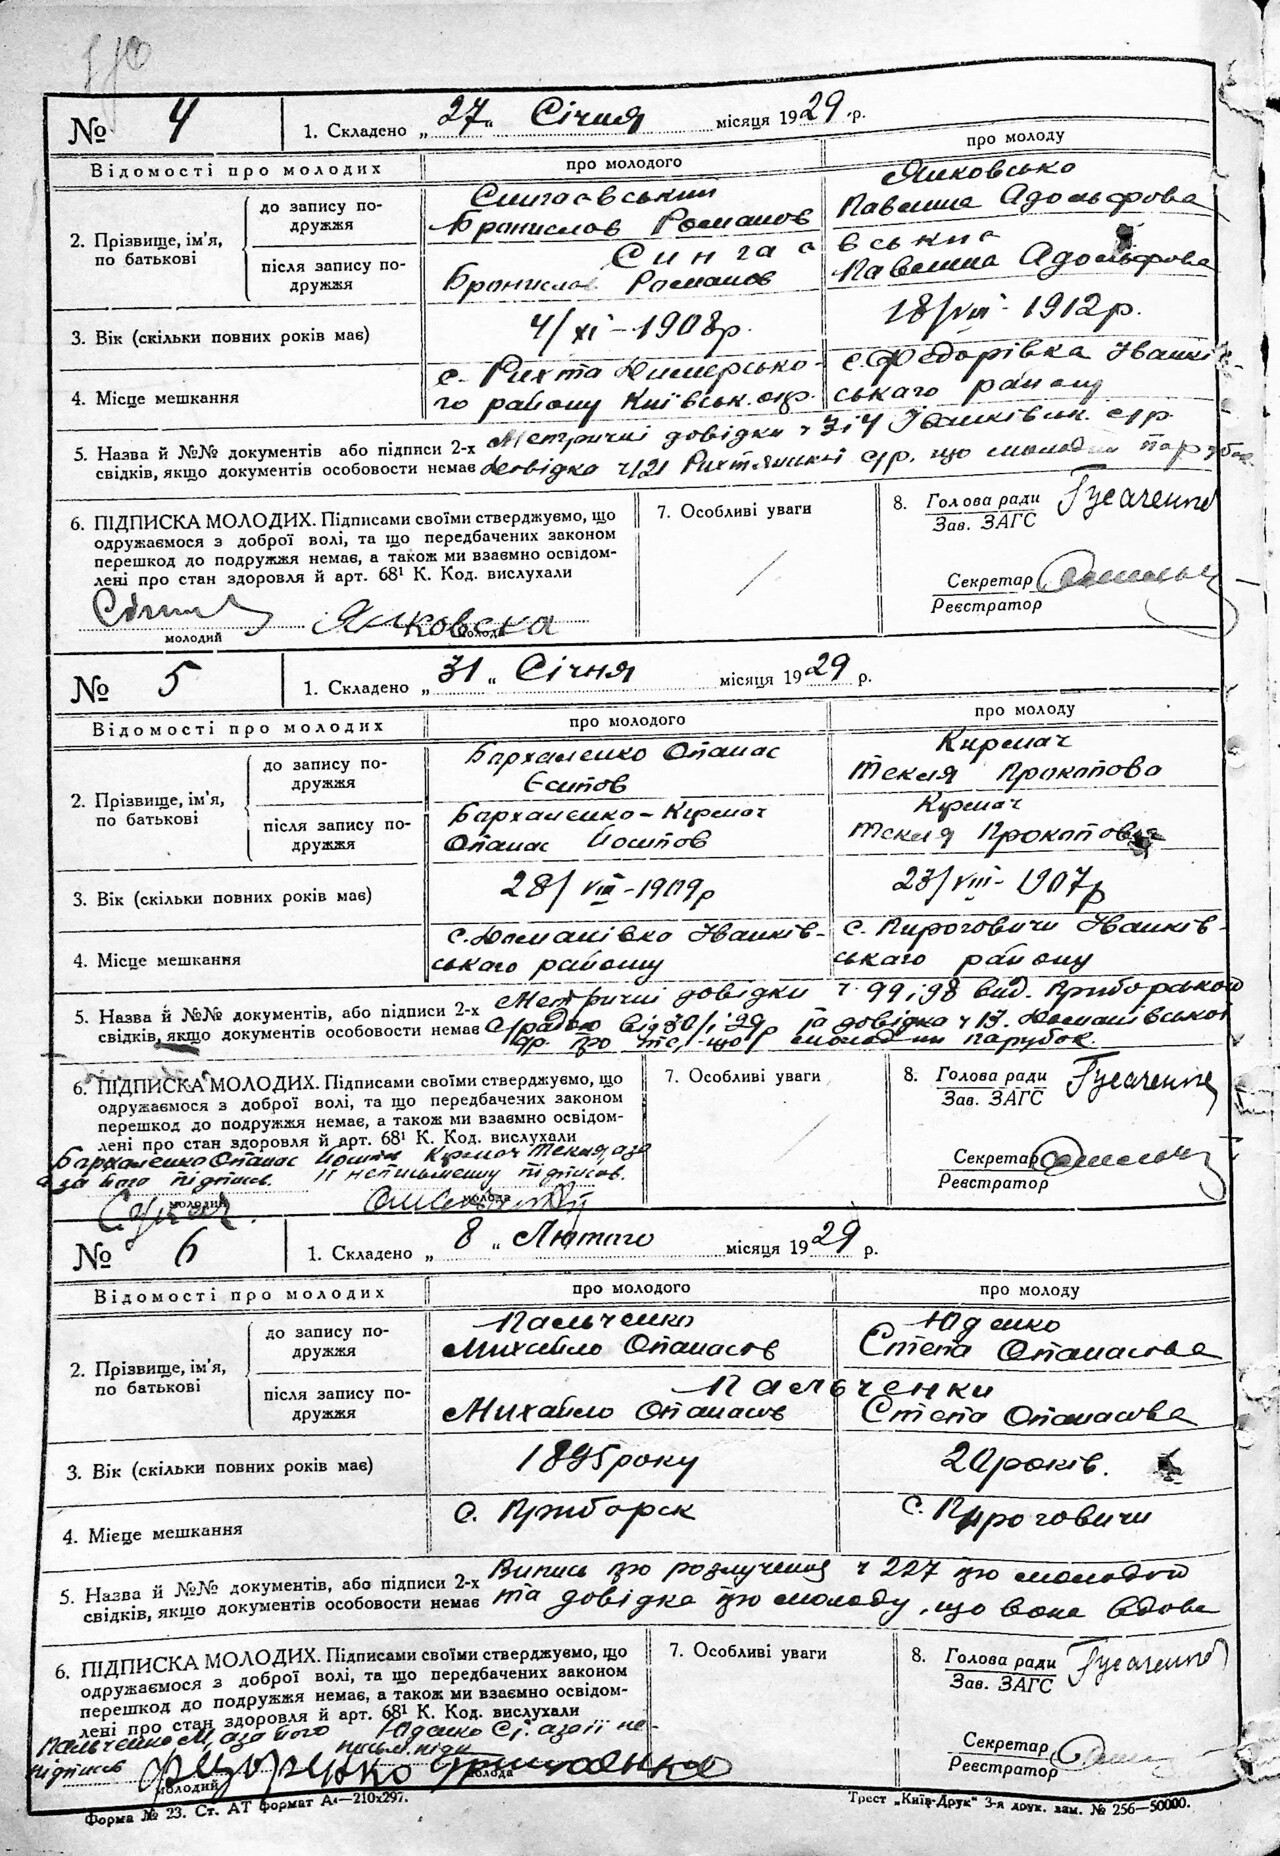 № 4 1. Складено „27“ Січня місяця 1929 р.
Відомості про молодих про молодого про молоду
2. Прізвище, ім'я, по батькові
до запису подружжя
Бронислав Романов
Янковсько
Павлина Адольфова
після запису подружжя
Сингаєвські
Бронислав Романов Павлина Адольфова
3. Вік (скільки повних років має) 4/XI-1908р. 18/VIII-1912р.
4. Місце мешкання с. Рихта Димерсько- с. Федорівка Іванків-
го району Київськ. окр. ського району
5. Назва й №№ документів або підписи 2-х Метричні довідки ч 3 і 4 Іванківськ. с/р.
свідків, якщо документів особовости немає довідка ч 121 Рихтянської с/р. що молодий парубок
6. ПІДПИСКА МОЛОДИХ. Підписами своїми стверджуємо, що
одружаємося з доброї волі, та що передбачених законом
перешкод до подружжя немає, а також ми взаємно освідом-
лені про стан здоровля й арт. 68¹ К. Код. вислухали
молодий Янковска молода
7. Особливі уваги
8. Голова ради Гусаченко
Зав. ЗАГС
Секретар
Реєстратор
№ 5 1. Складено „31“ Січня місяця 1929 р.
Відомості про молодих про молодого про молоду
2. Прізвище, ім'я, по батькові
до запису подружжя
Бархаленко Опанас
Єсипов
Кирмач
Текля Прокопова
після запису подружжя
Бархаленко-Кирмач
Опанас Йосипов
Кирмач
Текля Прокопова
3. Вік (скільки повних років має) 28/VIII-1909р 23/VIII-1907р
4. Місце мешкання с. Доманівка Іванків- с. Пироговичи Іванків-
ського району ського району
5. Назва й №№ документів, або підписи 2-х Метричні довідки ч. 99 і 98 вид. Приборською
свідків, якщо документів особовости немає с/радою від 30/I 29р та довідка ч 13. Доманівської
с/р. про те, що молодий парубок.
6. ПІДПИСКА МОЛОДИХ. Підписами своїми стверджуємо, що
одружаємося з доброї волі, та що передбачених законом
перешкод до подружжя немає, а також ми взаємно освідом-
лені про стан здоровля й арт. 68¹ К. Код. вислухали
Бархаленко Опанас Йосипов Кирмач Текля, а за
а за його підписав її неписьменну підписав.
молодий молода
7. Особливі уваги
8. Голова ради Гусаченко
Зав. ЗАГС
Секретар
Реєстратор
№ 6 1. Складено „8“ Лютого місяця 1929 р.
Відомості про молодих про молодого про молоду
2. Прізвище, ім'я, по батькові
до запису подружжя
Пальченко
Михайло Опанасов
Юденко
Степа Опанасова
після запису подружжя
Пальченки
Михайло Опанасов Степа Опанасова
3. Вік (скільки повних років має) 1895 року 20 років.
4. Місце мешкання с. Приборск с. Пироговичи
5. Назва й №№ документів, або підписи 2-х Випись про розлучення ч 227 про молодий
свідків, якщо документів особовости немає та довідка про молоду, що вона вдова
6. ПІДПИСКА МОЛОДИХ. Підписами своїми стверджуємо, що
одружаємося з доброї волі, та що передбачених законом
перешкод до подружжя немає, а також ми взаємно освідом-
лені про стан здоровля й арт. 68¹ К. Код. вислухали
Пальченко М, а за його Юденко Ст. а за її не-
підписав письм. підп.
молодий молода
7. Особливі уваги
8. Голова ради Гусаченко
Зав. ЗАГС
Секретар
Реєстратор
Форма № 23. Ст. АТ формат А4—210x297. Трест „Київ-Друк“ 3-я друк. зам. № 256—50000.